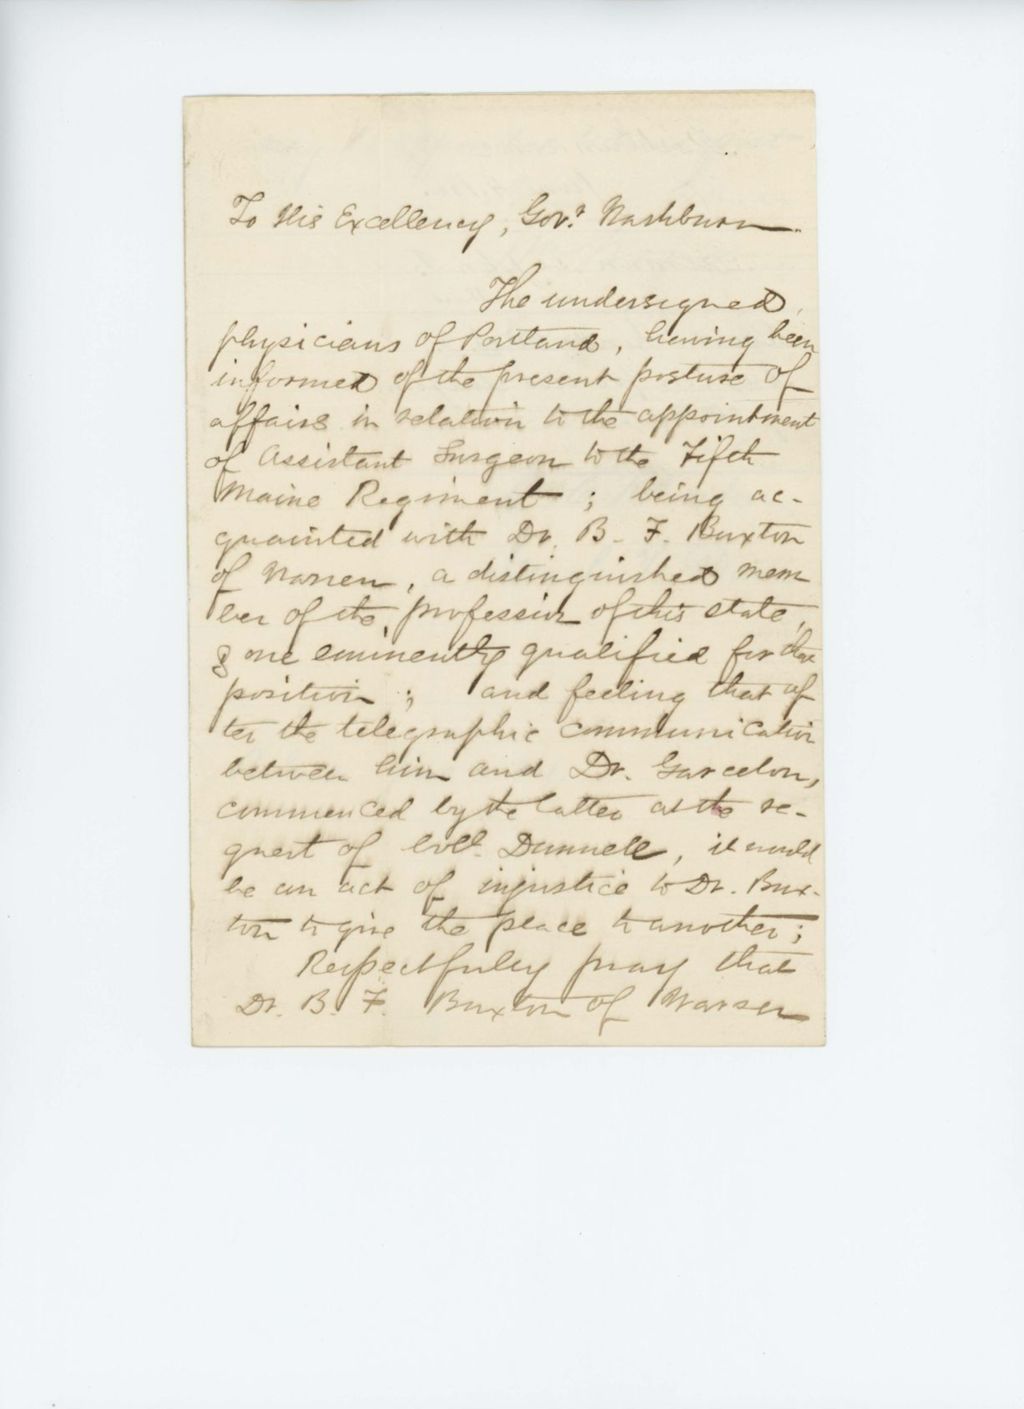 To His Excellency, Gov.r Washburn.
The undersigned,
physicians of Portland, having been
informed of the present posture of
affairs in relation to the appointment
of Assistant Surgeon to the Fifth
Maine Regiment; being ac-
quainted with Dr. B. F. Buxton
of Warren, a distinguished mem
ber of the profession of this state,
& one eminently qualified for that
position; and feeling that af
ter the telegraphic communication
between him and Dr. Garcelon,
commenced by the latter at the re-
quest of Coll. Dunnell, it would
be an act of injustice to Dr. Bux-
ton to give the place to another;
Respectfully pray that
Dr. B. F. Buxton of Warren